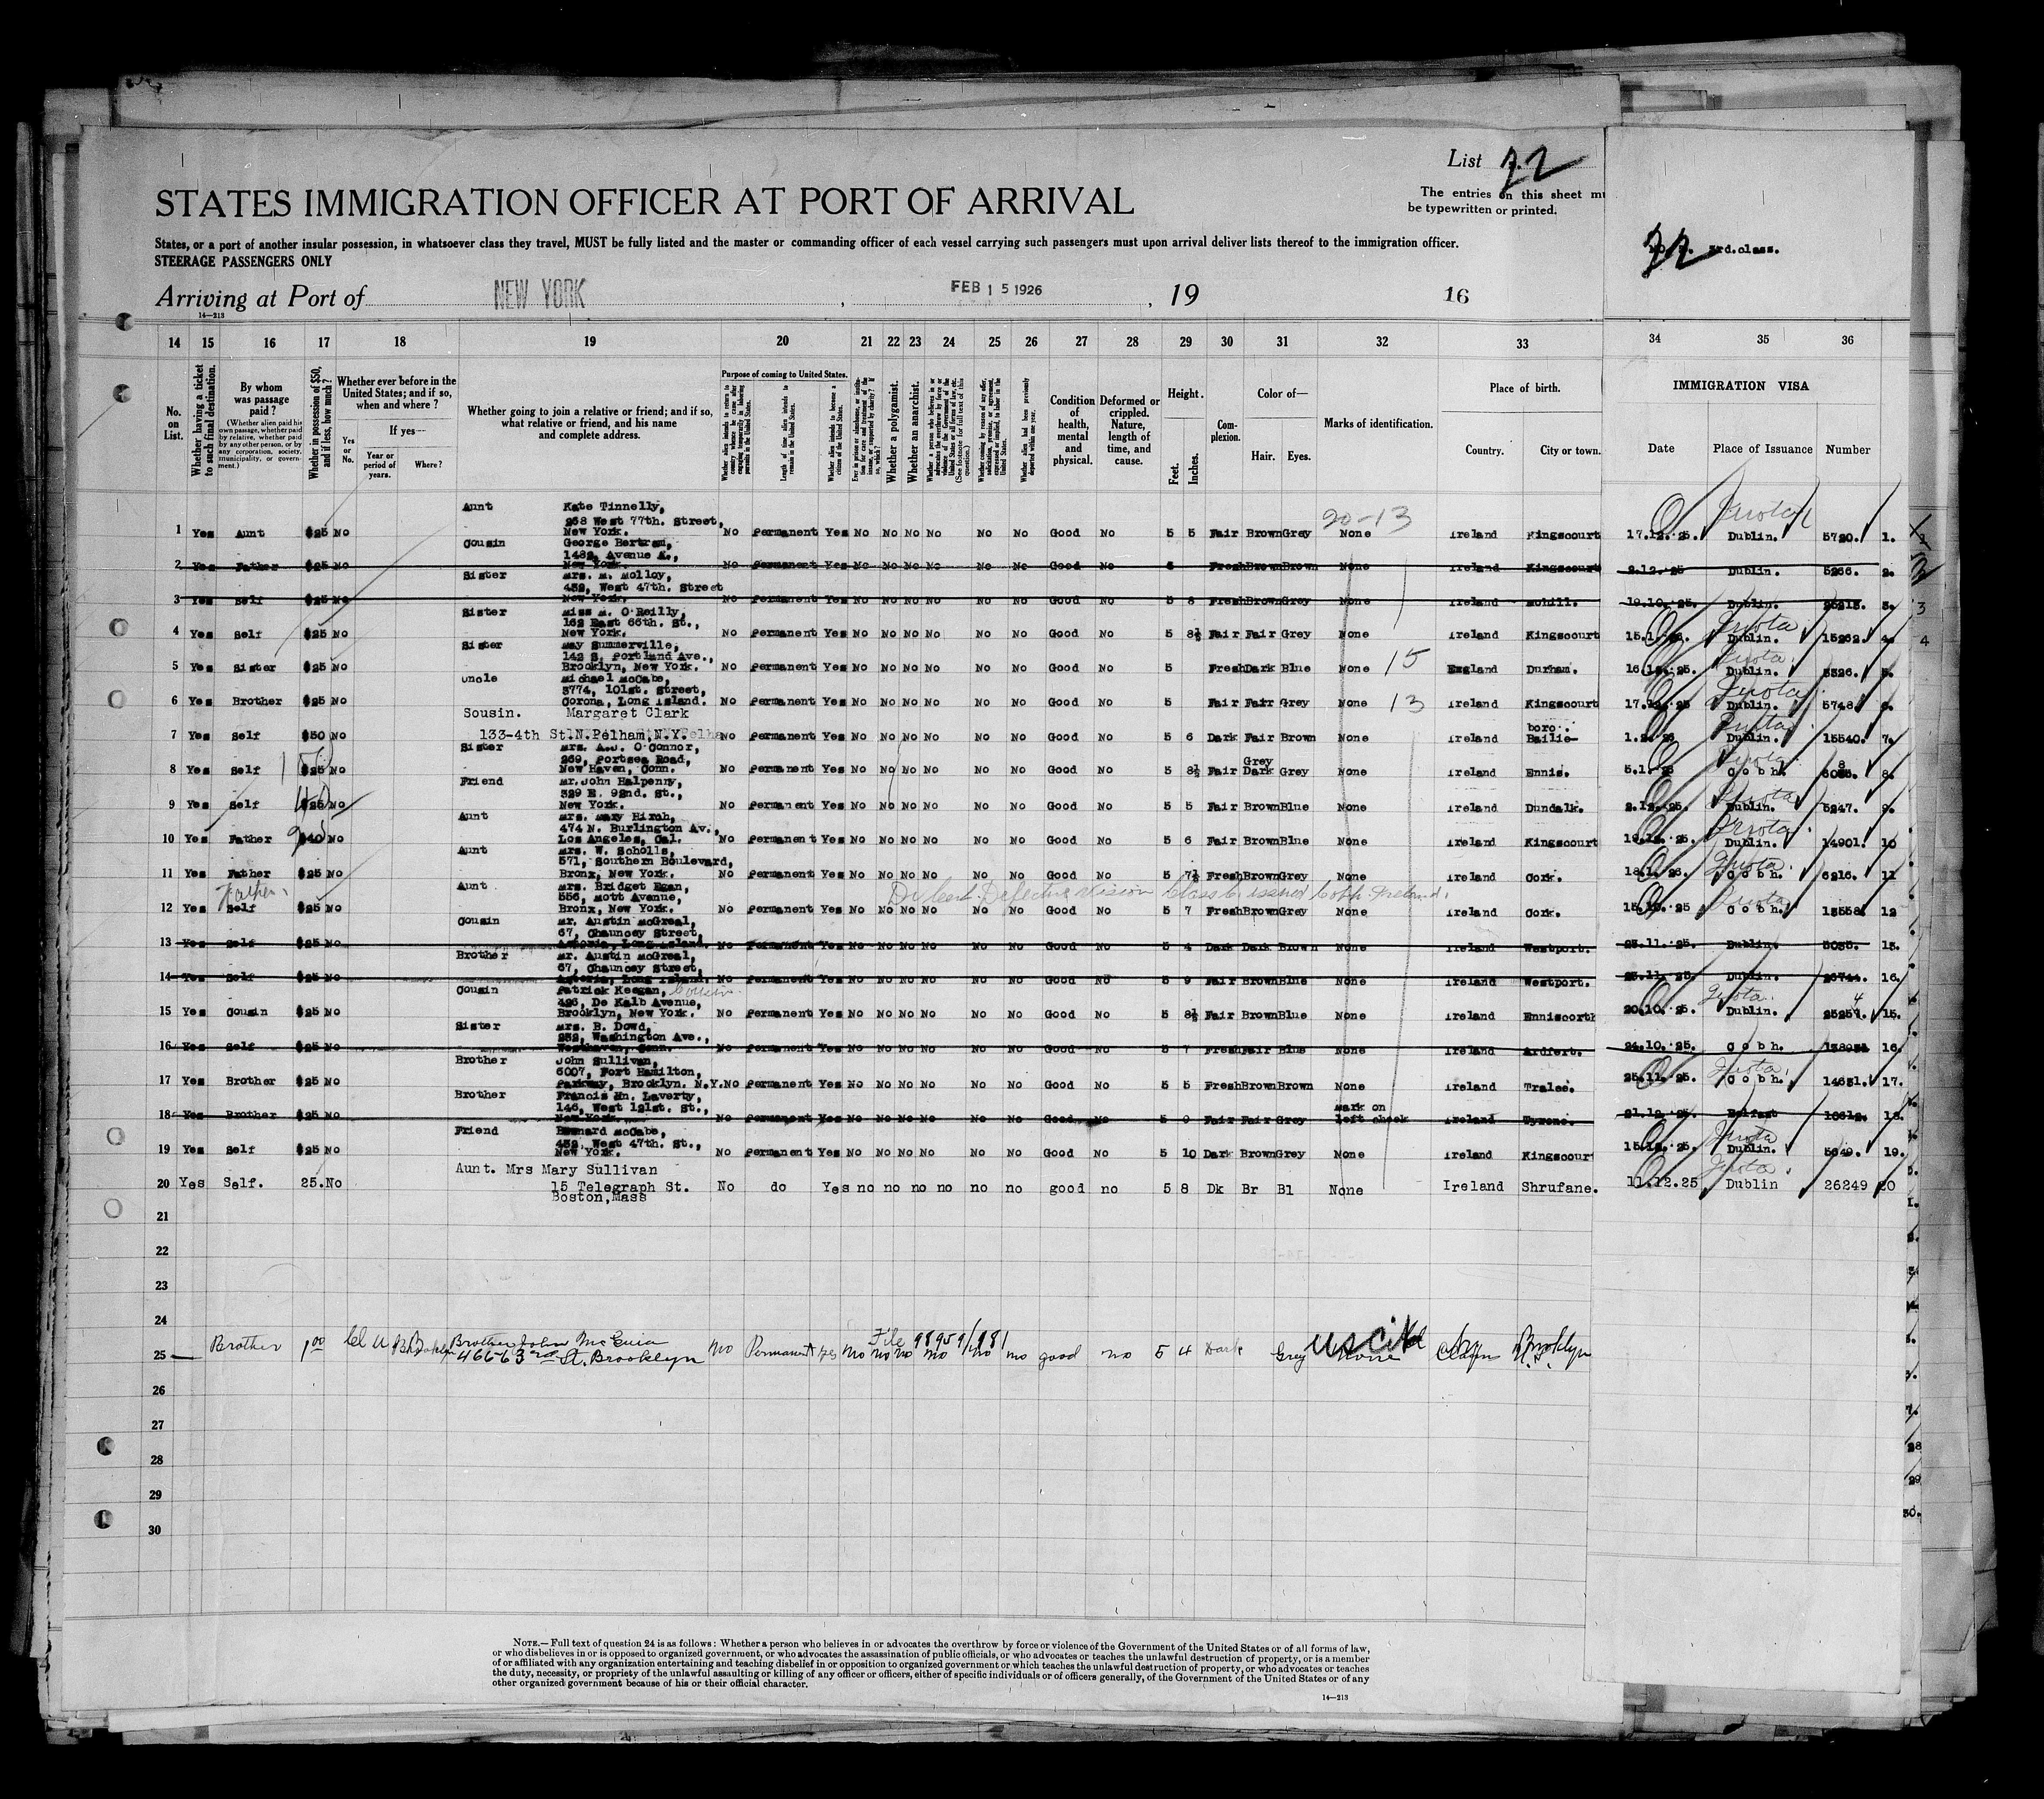 List 22
STATES IMMIGRATION OFFICER AT PORT OF ARRIVAL
The entries on this sheet mu
be typewritten or printed.
States, or a port of another insular possession, in whatsoever class they travel, MUST be fully listed and the master or commanding officer of each vessel carrying such passengers must upon arrival deliver lists thereof to the immigration officer.
STEERAGE PASSENGERS ONLY
3rd.class.
Arriving at Port of NEW YORK , FEB 15 1926 , 19 16
14—213
14 15 16 17 18 19 20 21 22 23 24 25 26 27 28 29 30 31 32 33 34 35 36
No. on List.
Whether having a ticket to such final destination.
By whom was passage paid?
(Whether alien paid his own passage, whether paid by relative, whether paid by any other person, or by any corporation, society, municipality, or government.)
Whether in possession of $50, and if less, how much?
Whether ever before in the United States; and if so, when and where?
Yes or No.
If yes—
Year or period of years.
Where?
Whether going to join a relative or friend; and if so, what relative or friend, and his name and complete address.
Purpose of coming to United States.
Whether alien intends to return to country whence he came after engaging temporarily in laboring pursuits in the United States.
Length of time alien intends to remain in the United States.
Whether alien intends to become a citizen of the United States.
Whether a polygamist.
Whether an anarchist.
Condition of health, mental and physical.
Deformed or crippled. Nature, length of time, and cause.
Height.
Feet. Inches.
Complexion.
Color of—
Hair. Eyes.
Marks of identification.
Place of birth.
Country. City or town.
IMMIGRATION VISA
Date Place of Issuance Number
Aunt Kate Tinnelly,
258 West 77th. Street, 20-13 Quota
1 Yes Aunt $25 No New York. No Permanent Yes No No No No No No Good No 5 5 Fair Brown Grey None Ireland Kingscourt 17.12.25. Dublin. 5720. 1.
Cousin George Bertram,
1482, Avenue A.,
2 Yes Father $25 No New York. No Permanent Yes No No No No No No Good No 5 Fresh Brown Brown None Ireland Kingscourt 2.12.25 Dublin. 5266. 2.
Sister Mrs. M. Molloy,
452, West 47th. Street
3 Yes Self $25 No New York. No Permanent Yes No No No No No No Good No 5 8 Fresh Brown Grey None Ireland Mohill. 19.10.25. Dublin. 3.
Sister Miss M. O'Reilly,
162 East 66th. St., Quota
4 Yes Self $25 No New York. No Permanent Yes No No No No No No Good No 5 8½ Fair Fair Grey None Ireland Kingscourt 15.1.26. Dublin. 15262. 4.
Sister May Summerville,
142 S. Portland Ave., 15 Quota
5 Yes Sister $25 No Brooklyn, New York. No Permanent Yes No No No No No No Good No 5 Fresh Dark Blue None England Durham. 16.12.25. Dublin. 5.
Uncle Michael McCabe,
3774, 101st. Street, 13 Quota
6 Yes Brother $25 No Corona, Long Island. No Permanent Yes No No No No No No Good No 5 Fair Fair Grey None Ireland Kingscourt 17.12.25 Dublin. 5748. 6.
Sousin. Margaret Clark boro. Quota
7 Yes Self $50 No 133-4th St.N.Pelham,N.Y. No Permanent Yes No No No No No No Good No 5 6 Dark Fair Brown None Ireland Bailie- 1.2.26 Dublin. 15540. 7.
Sister Mrs. A.J. O'Connor,
269, Portsea Road, Grey Quota
8 Yes Self $25 No New Haven, Conn. No Permanent Yes No No No No No No Good No 5 8½ Fair Dark Grey None Ireland Ennis. 5.1.26 Cobh. 8.
Friend Mr. John Halpenny,
329 E. 92nd. St., Quota
9 Yes Self $25 No New York. No Permanent Yes No No No No No No Good No 5 5 Fair Brown Blue None Ireland Dundalk. 2.12.25. Dublin. 5247. 9.
Aunt Mrs. Mary Hirch,
474 N. Burlington Av., Quota
10 Yes Father $40 No Los Angeles, Cal. No Permanent Yes No No No No No No Good No 5 6 Fair Brown Blue None Ireland Kingscourt 19.12.25. Dublin. 14901. 10
Aunt Mrs. W. Scholls,
571, Southern Boulevard, Quota
11 Yes Father $25 No Bronx, New York. No Permanent Yes No No No No No No Good No 5 7½ Fresh Brown Grey None Ireland Cork. 18.1.26. Cobh. 6216. 11
Father Aunt Mrs. Bridget Egan, Defective Vision Class C issued Cobh. Ireland.
556, Mott Avenue, Quota
12 Yes Self $25 No Bronx, New York. No Permanent Yes No No No No No No Good No 5 7 Fresh Brown Grey None Ireland Cork. 15.10.25 Cobh. 13558. 12
Cousin Mr. Austin McGreal,
67, Chauncey Street,
13 Yes Self $25 No Astoria, Long Island. No Permanent Yes No No No No No No Good No 5 4 Dark Dark Brown None Ireland Westport. 23.11.25. Dublin. 5035. 13.
Brother Mr. Austin McGreal,
67, Chauncey Street,
14 Yes Self $25 No Astoria, Long Island. No Permanent Yes No No No No No No Good No 5 9 Fair Brown Blue None Ireland Westport. 23.11.25. Dublin. 26744. 16.
Cousin Patrick Keegan, Cousin
426, De Kalb Avenue, Quota
15 Yes Cousin $25 No Brooklyn, New York. No Permanent Yes No No No No No No Good No 5 8½ Fair Brown Blue None Ireland Enniscorth 20.10.25. Dublin. 15.
Sister Mrs. B. Dowd,
252, Washington Ave.,
16 Yes Self $25 No Westhaven, Conn. No Permanent Yes No No No No No No Good No 5 7 Fresh Fair Blue None Ireland Ardfert. 24.10.25. Cobh. 16.
Brother John Sullivan,
6007, Fort Hamilton, Quota
17 Yes Brother $25 No Parkway, Brooklyn. N.Y. No Permanent Yes No No No No No No Good No 5 5 Fresh Brown Brown None Ireland Tralee. 25.11.25. Cobh. 14631. 17.
Brother Francis Mn. Laverty,
146, West 121st. St., Mark on
18 Yes Brother $25 No New York. No Permanent Yes No No No No No No Good No 5 9 Fair Fair Grey left cheek Ireland Tyrone. 21.12.25. Belfast 18.
Friend Bernard McCabe,
452, West 47th. St., Quota
19 Yes Self $25 No New York. No Permanent Yes No No No No No No Good No 5 10 Dark Brown Grey None Ireland Kingscour 15.12.25. Dublin. 5649. 19.
Aunt. Mrs Mary Sullivan Quota
20 Yes Self. 25. No 15 Telegraph St. No do Yes no no no no no no good no 5 8 Dk Br Bl None Ireland Shrufane. 11.12.25 Dublin 26249 20
Boston,Mass
21
22
23
24
File 98959/181
Brother John McGuire USCit
25 Brother 1.00 466-63rd St. Brooklyn no Permanent yes no no no no no no good no 5 4 Dark Grey None Brooklyn
26
27
28
29
30
NOTE.—Full text of question 24 is as follows: Whether a person who believes in or advocates the overthrow by force or violence of the Government of the United States or of all forms of law,
or who disbelieves in or is opposed to organized government, or who advocates the assassination of public officials, or who advocates or teaches the unlawful destruction of property, or is a member
of or affiliated with any organization entertaining and teaching disbelief in or opposition to organized government or which teaches the unlawful destruction of property, or who advocates or teaches
the duty, necessity, or propriety of the unlawful assaulting or killing of any officer or officers, either of specific individuals or of officers generally, of the Government of the United States or of any
other organized government because of his or their official character.
14—213